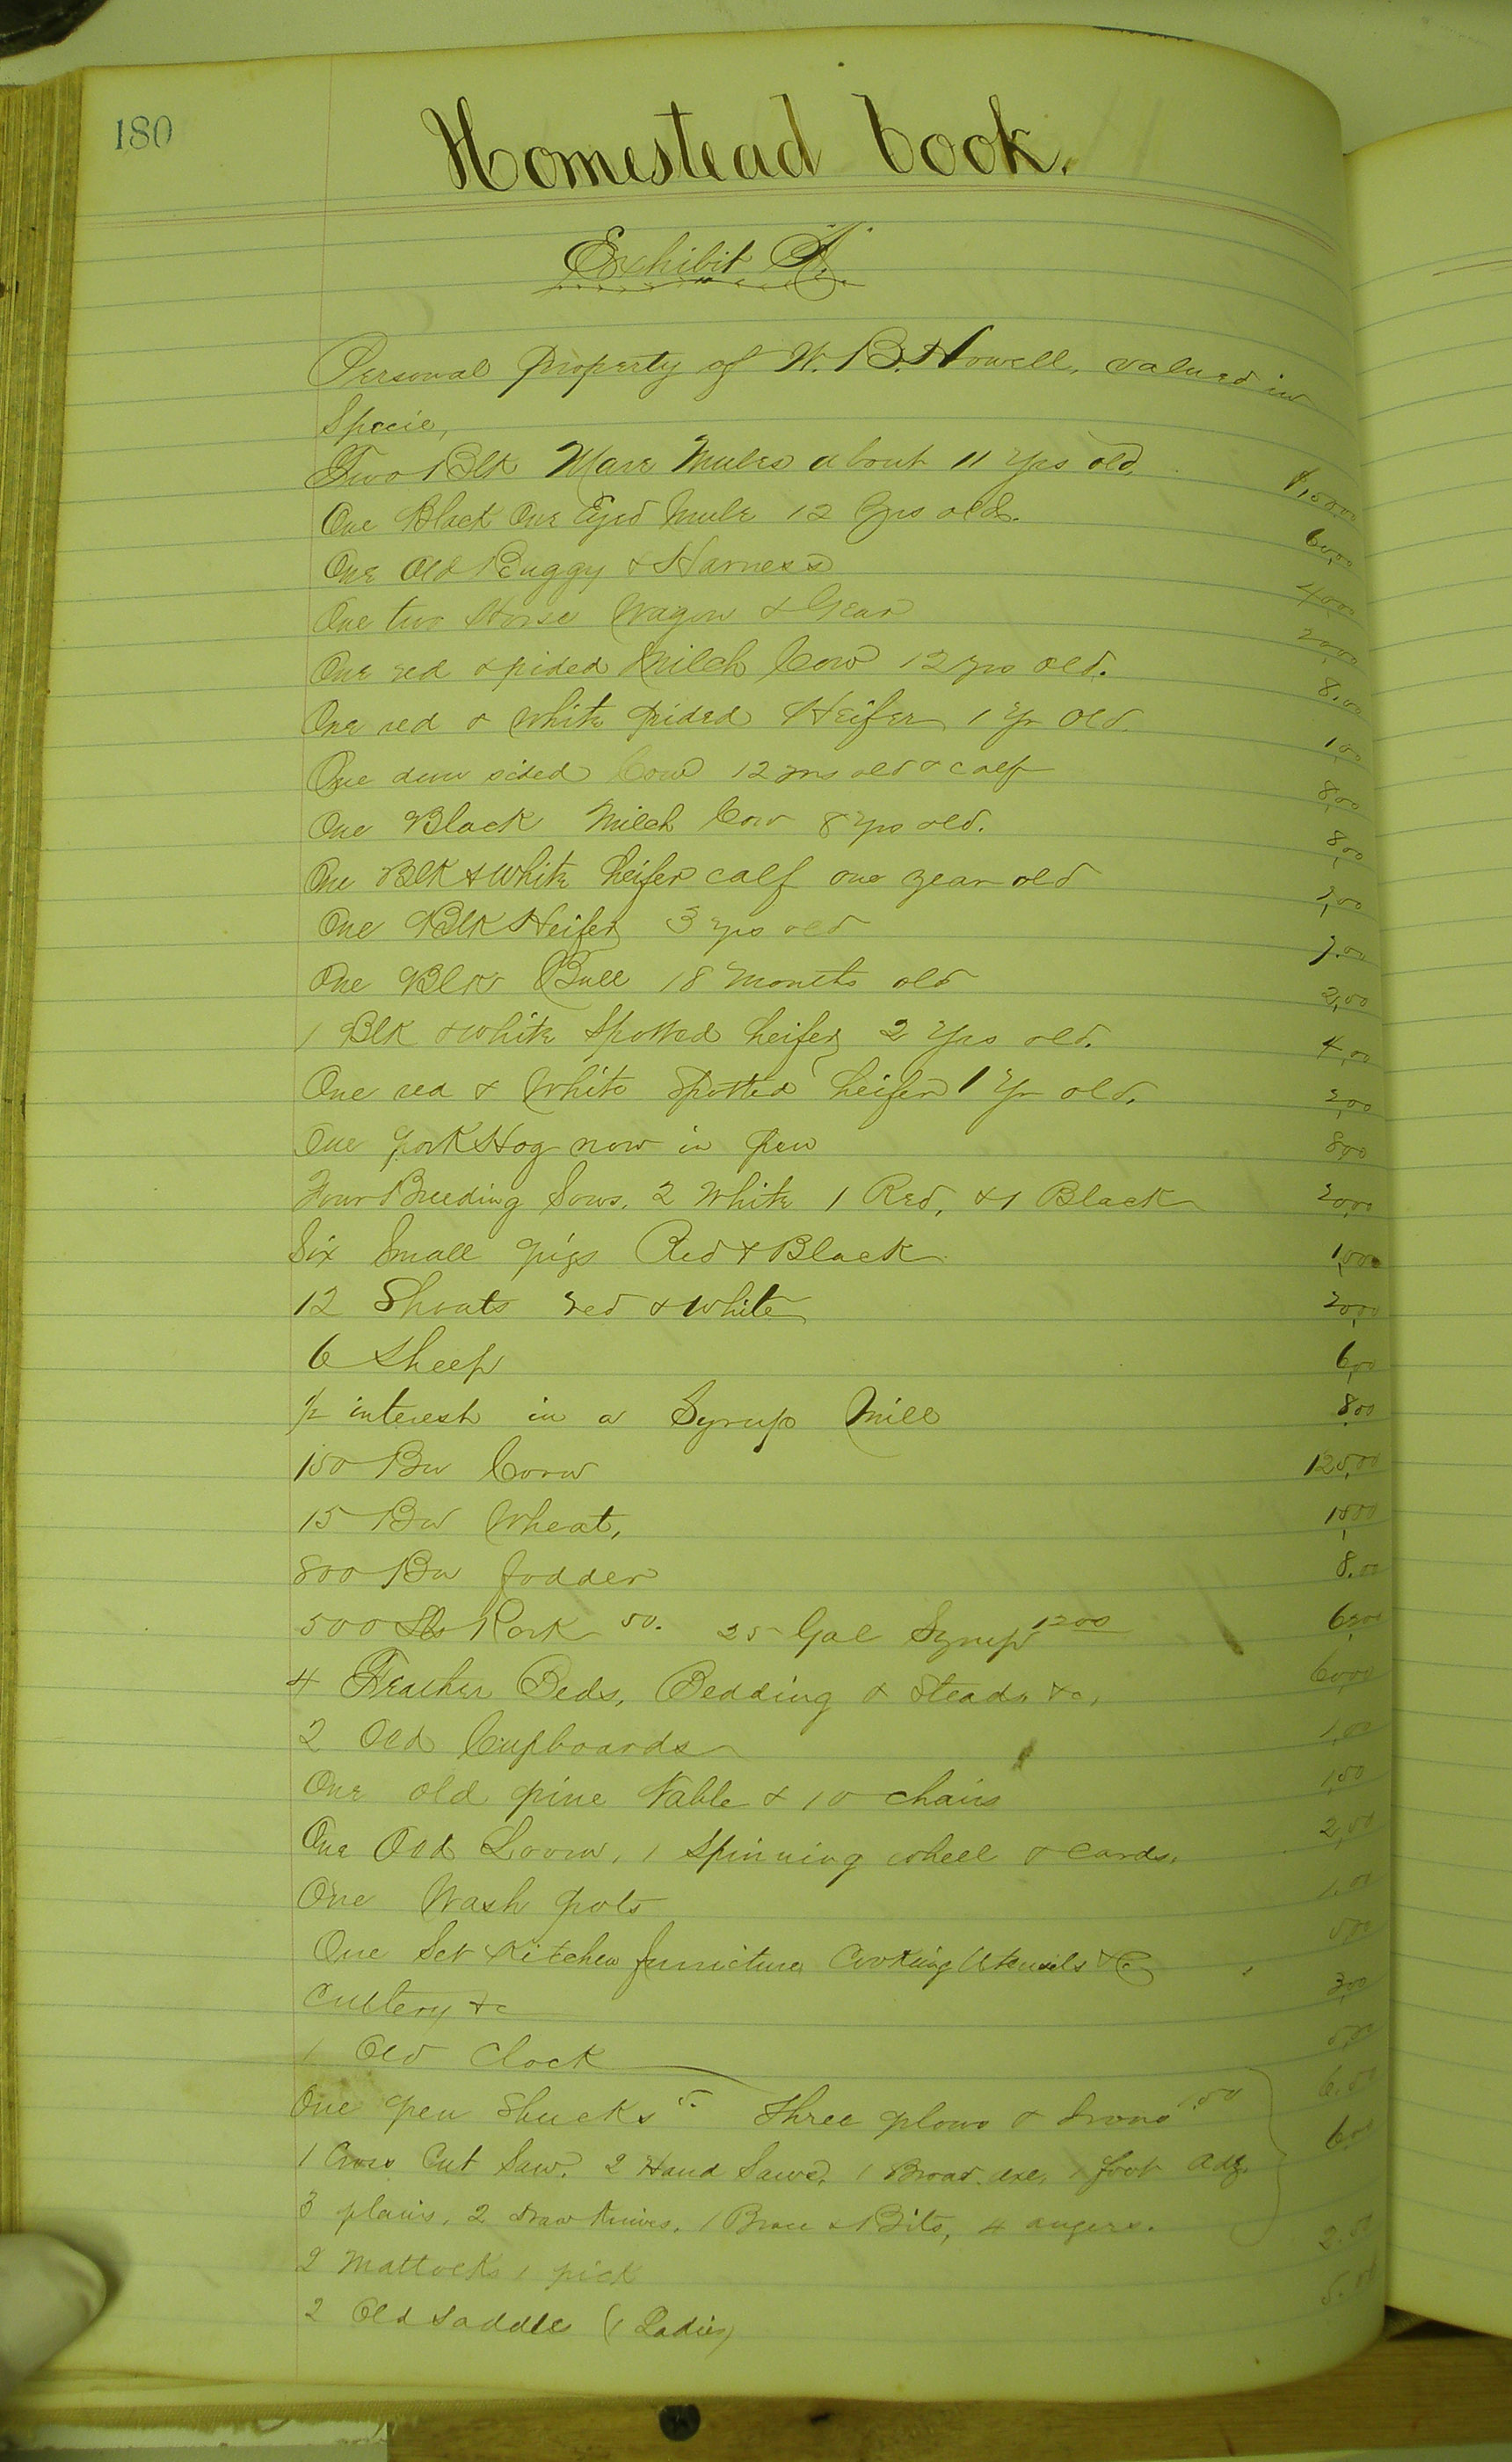 180
Homestead book.
Exhibit "A"
Personal property of W. B. Howell, valued in
Specie,
Two Blk Mare Mules about 11 yrs old,
One Black One Eyed Mule 12 Yrs old. 60,00
One Old Buggy & Harness
One two Horse Wagon & Gear 20,00
One red & pided Milch Cow 12 yrs old. 8.00
One red & White pided Heifer 1 Yr Old.
One dun sided Cow 12 yrs old & calf 8,00
One Black Milch Cow 8 yrs old. 8,00
One Blk & White heifer calf one year old
One Blk Heifer 3 yrs old
One Blk Bull 18 months old 2,00
1 Blk & White Spotted heifer 2 Yrs old. 4,00
One red & White Spotted heifer 1 Yr old. 2,00
One pork Hog now in pen 8,00
Four Breeding Sows. 2 White 1 Red, & 1 Black 20,00
Six Small pigs Red & Black
12 Shoats red & White 20,00
6 Sheep 6,00
1/2 interest in a Syrup Mill 8.00
150 Bu Corn 125,00
15 Bu Wheat, 15,00
800 Bu fodder 8.00
500 lbs Pork 50. 25 Gal Syrup 12 00
4 Feather Beds, Bedding & Steads &c, 60,00
2 Old Cupboards 1,00
One old pine table & 10 chairs 1,50
One Old Loom, 1 Spinning wheel & cards. 2,50
One Wash pots 1.00
One Set Kitchen furniture Cooking Utensils &c 5,00
Cutlery &c 3,00
1 Old Clock 5,00
One pen Shucks 5. Three plows & Irons 1.50 6.50
1 Cross Cut Saw. 2 Hand Saws, 1 Broad axe, 1 foot adz. 6.00
3 plains, 2 draw knives. 1 Brace & Bits, 4 augers.
2 Mattocks 1 pick 2.50
2 Old Saddle (1 Ladies) 5.00